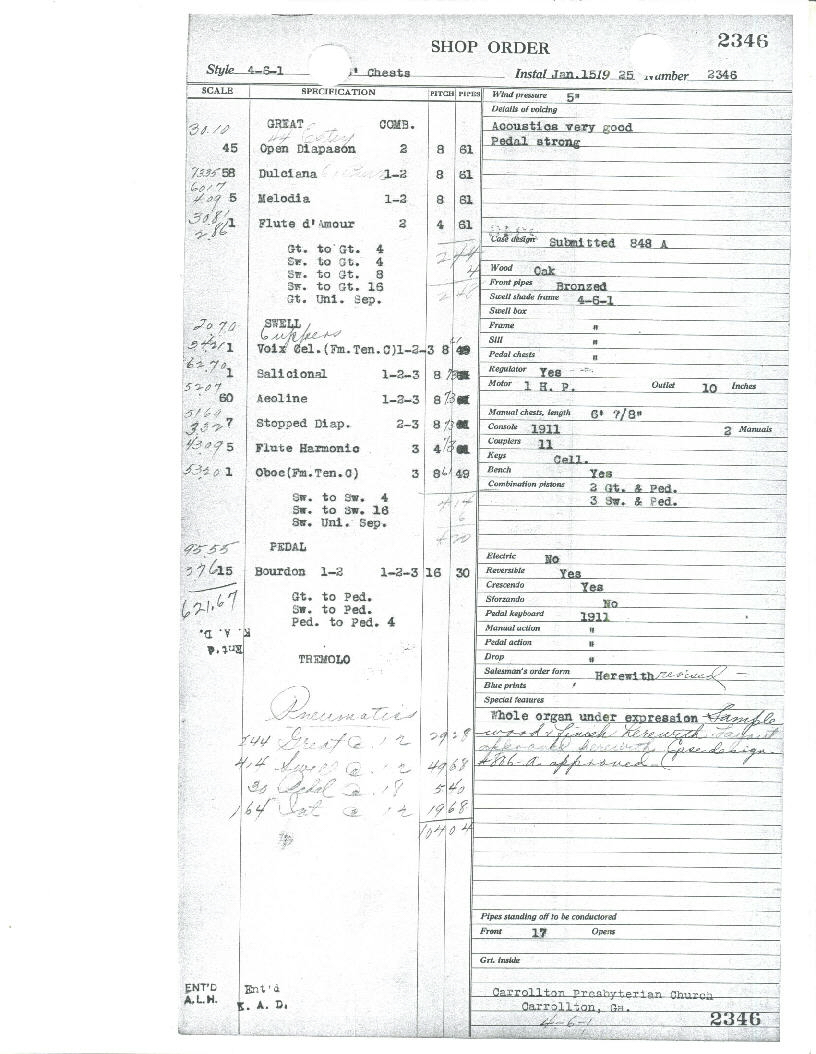 2346
SHOP ORDER
Style 4-6-1 6' Chests Instal Jan.15/9 25 Number 2346
SCALE SPECIFICATION PITCH PIPES
30.10 GREAT COMB.
44 Estey
45 Open Diapason 2 8 61
7335 58 Dulciana 1-2 8 61
6017
409 5 Melodia 1-2 8 61
3081
2.86 1 Flute d'Amour 2 4 61
Gt. to Gt. 4 244
Sw. to Gt. 4 4
Sw. to Gt. 8
Sw. to Gt. 16 248
Gt. Uni. Sep.
2070 SWELL
Cuppers
5421 1 Voix Cel.(Fm.Ten.C)1-2-3 8 61 49
6270 1 Salicional 1-2-3 8 73 61
5207
60 Aeoline 1-2-3 8 73 61
5169
332 7 Stopped Diap. 2-3 8 73 61
4309 5 Flute Harmonic 3 4 73 61
5320 1 Oboe(Fm.Ten.C) 3 8 61 49
Sw. to Sw. 4 414
Sw. to Sw. 16 6
Sw. Uni. Sep.
420
9555 PEDAL
376 15 Bourdon 1-2 1-2-3 16 30
621.67
Gt. to Ped.
Sw. to Ped.
Ped. to Ped. 4
K. A. D.
Ent'd
TREMOLO
Pneumatics
244 Great @ 12 2928
414 Swell @ 12 4968
30 Pedal @ 18 540
164 @ 12 1968
10404
ENT'D
A.L.H.
Ent'd
K. A. D.
Wind pressure 5"
Details of voicing
Acoustics very good
Pedal strong
Case design Submitted 848 A
Wood Oak
Front pipes Bronzed
Swell shade frame 4-6-1
Swell box
Frame "
Sill "
Pedal chests "
Regulator Yes
Motor 1 H. P. Outlet 10 Inches
Manual chests, length 6' 7/8"
Console 1911 2 Manuals
Couplers 11
Keys Cell.
Bench Yes
Combination pistons 2 Gt. & Ped.
3 Sw. & Ped.
Electric No
Reversible Yes
Crescendo Yes
Sforzando No
Pedal keyboard 1911
Manual action "
Pedal action "
Drop "
Salesman's order form Herewith revised
Blue prints '
Special features
Whole organ under expression Sample
wood & finish herewith
approved herewith Case design
approved
Pipes standing off to be conductored
Front 17 Opens
Grt. inside
Carrollton Presbyterian Church
Carrollton, Ga.
4-6-1
2346